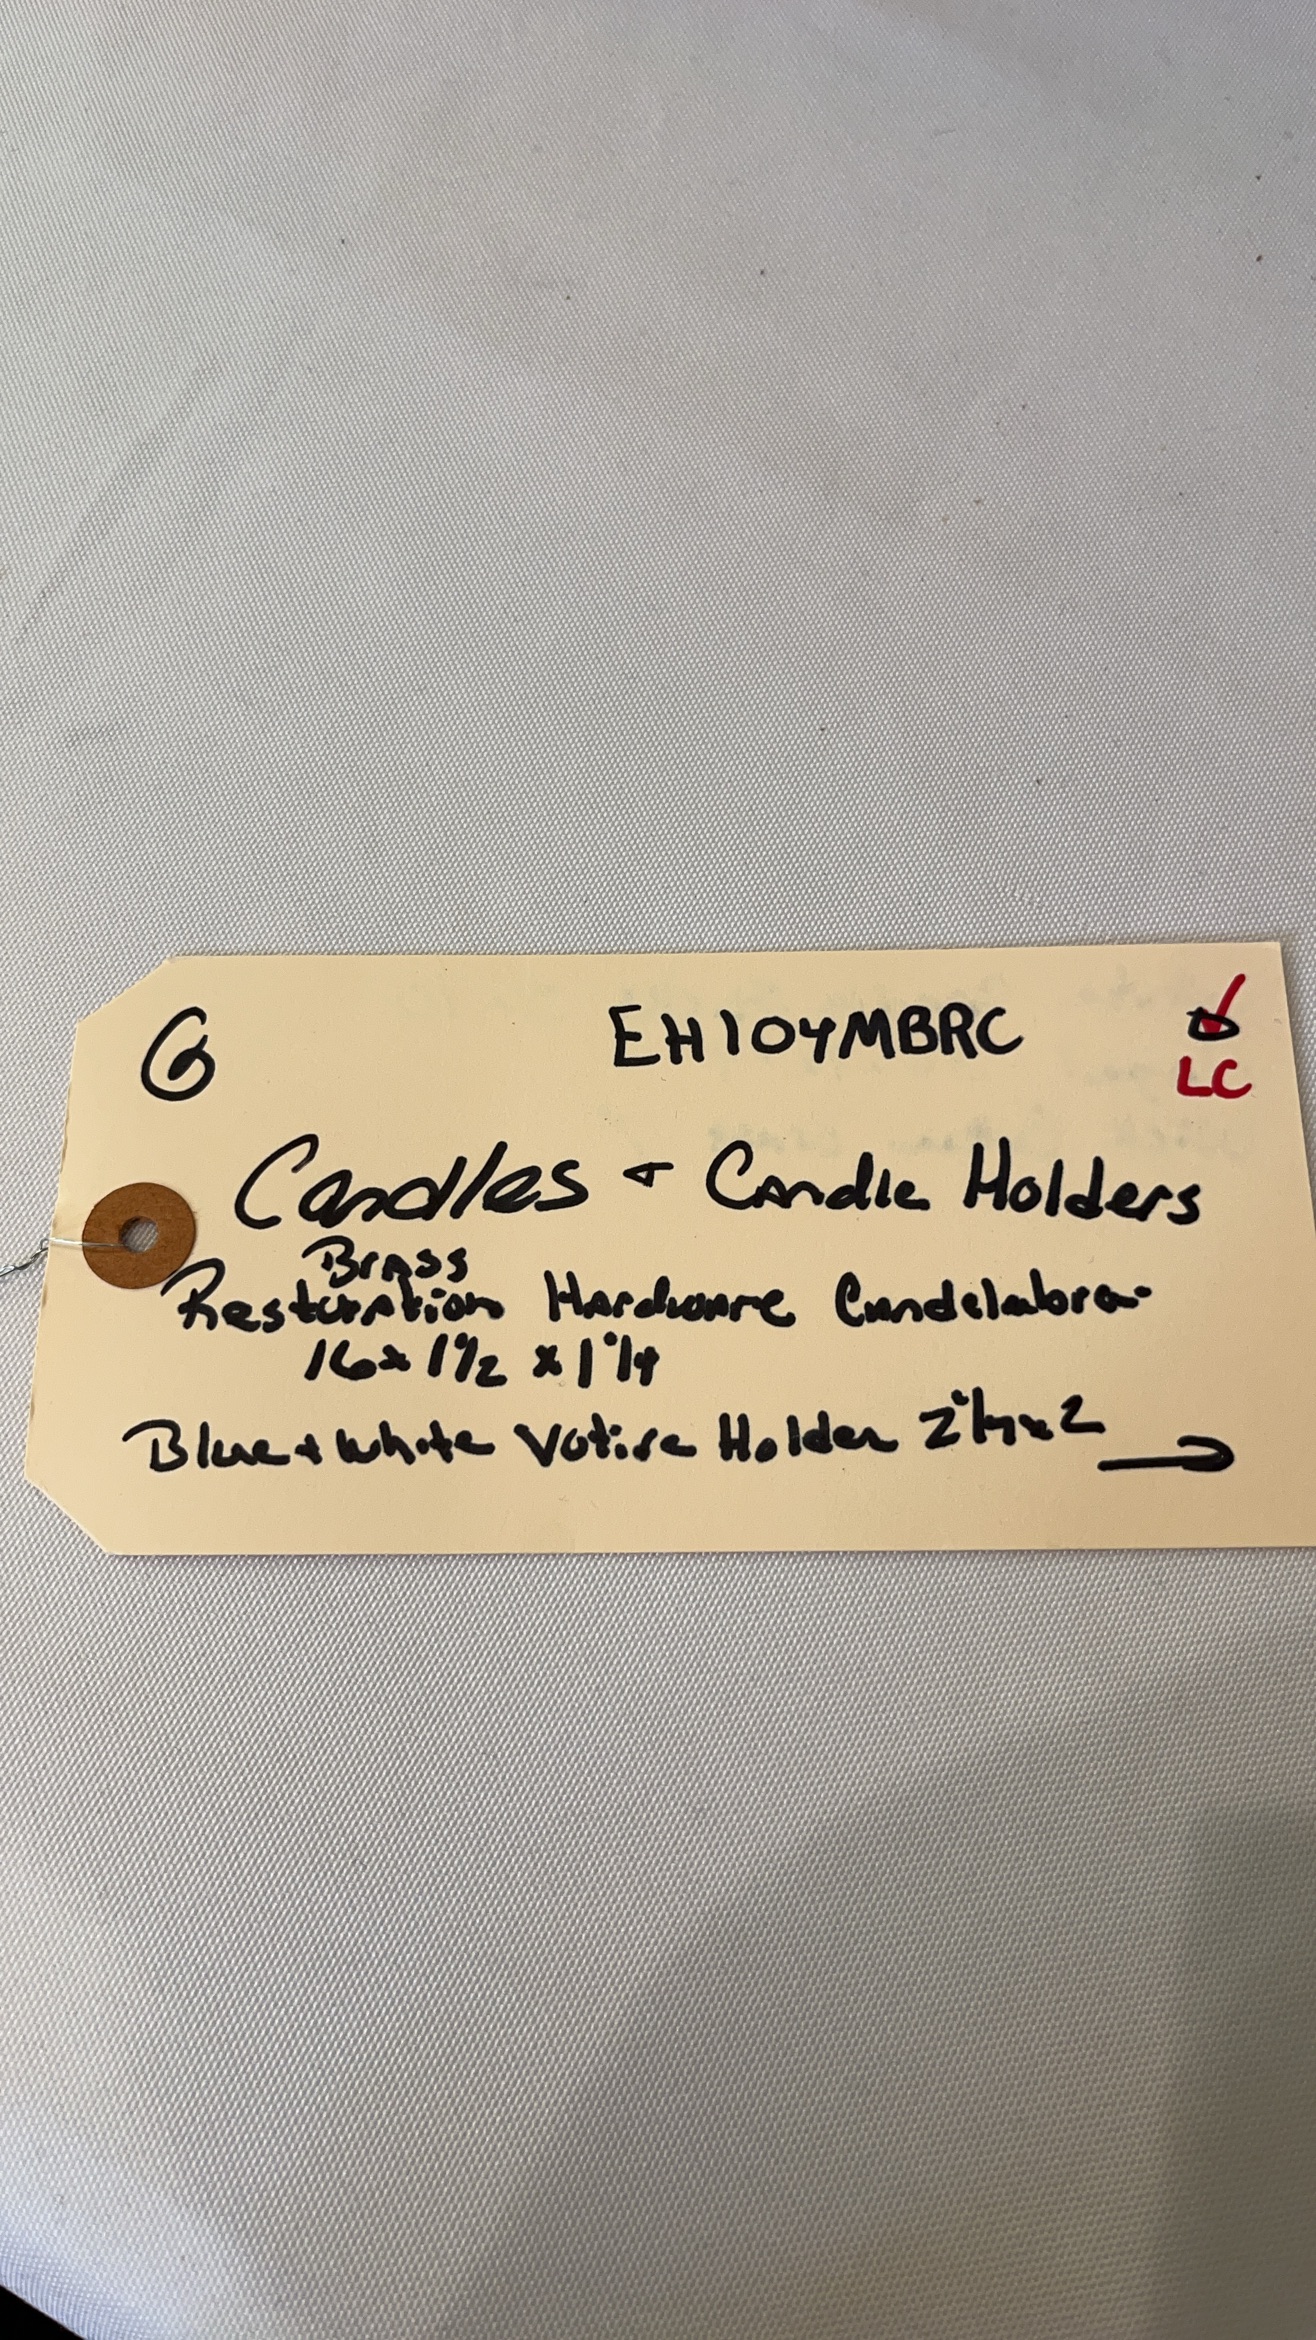 G EH104MBRC
LC
Candles + Candle Holders
Brass
Restoration Hardware Candelabra
16 x 1 1/2 x 1 1/4
Blue + White Votive Holder 2 1/4 x 2 →